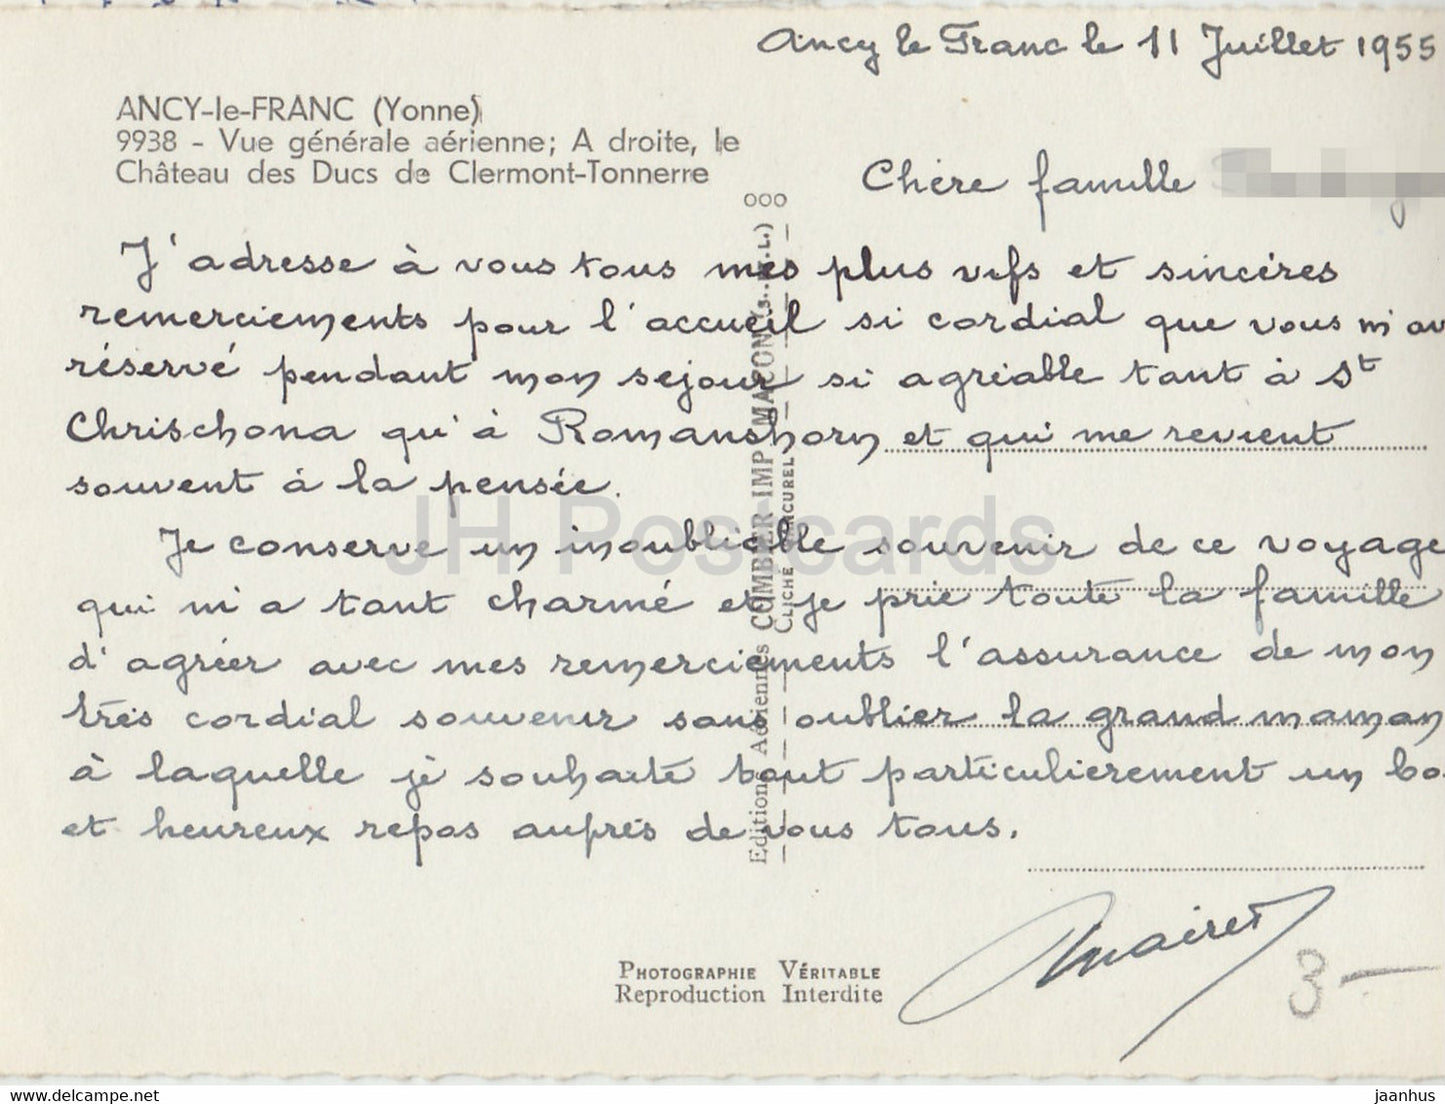 Ancy le Franc le 11 Juillet 1955
ANCY-le-FRANC (Yonne)
9938 - Vue générale aérienne; A droite, le
Château des Ducs de Clermont-Tonnerre
Chère famille
J'adresse à vous tous mes plus vifs et sincères
remerciements pour l'accueil si cordial que vous m'av
réservé pendant mon sejour si agréable tant à St
Chrischona qu'à Romanshorn et qui me revient
souvent à la pensée.
Je conserve un inoubliable souvenir de ce voyage
qui m'a tant charmé et je prie toute la famille
d'agréer avec mes remerciements l'assurance de mon
très cordial souvenir sans oublier la grand maman
à laquelle je souhaite tout particulièrement un bo
et heureux repos auprès de vous tous.
Mairet
3-
Editions Aériennes COMBIER IMP. MACON (S..R.L.)
CLICHÉ
ooo
PHOTOGRAPHIE VÉRITABLE
Reproduction Interdite
JH Postcards
www.delcampe.net
jaanhus